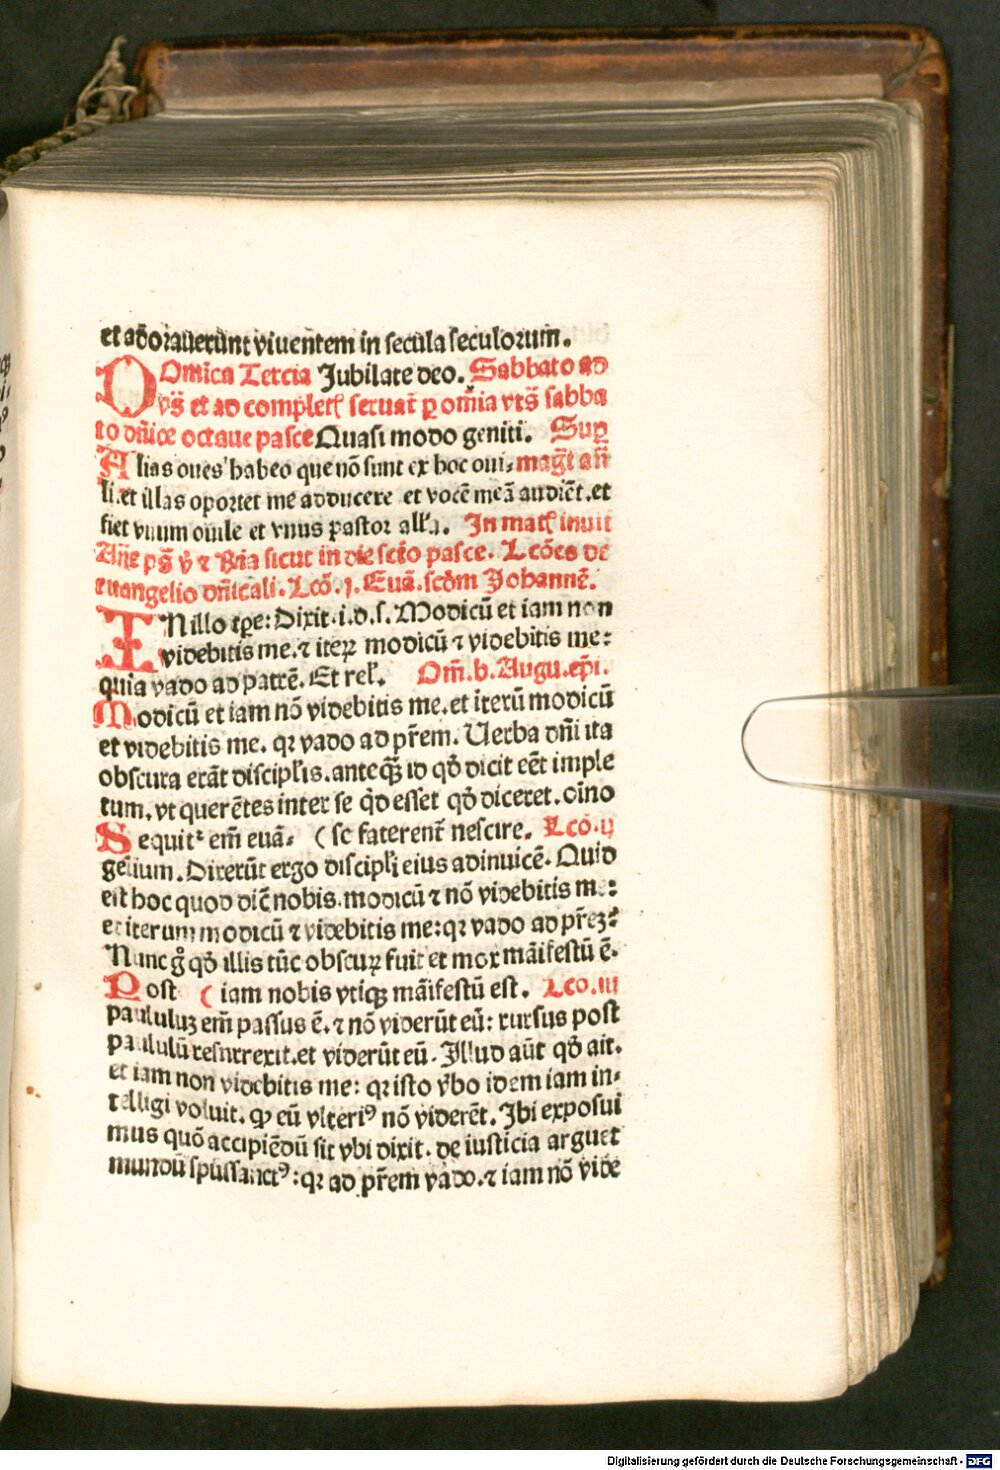 et adorauerunt viuentem in secula seculorum.
DOmica Tercia Jubilate deo. Sabbato ad
vs̄ et ad complet̄ seruat̄ ꝑ om̄ia vrs̄ sabba
to dn̄ice octaue pasce Quasi modo geniti. Suꝑ
Alias oues habeo que nō sunt ex hoc oui⸗ magt̄ an̄
li. et illas oportet me adducere et vocē meā audiēt. et
fiet vnum ouile et vnus pastor all'a. In mat̄ inuit
Ān̄e ps̄ v̄ ⁊ R̄ia sicut in die sct̄o pasce. Lcōes de
euangelio dn̄icali. Lcō. j. Euā. scd̄m Johannē.
IN illo tꝑe: Dixit. i. d. s. Modicū et iam non
videbitis me. ⁊ iteꝝ modicū ⁊ videbitis me:
quia vado ad patrē. Et rel'. Om̄. b. Augu. ep̄i.
Modicū et iam nō videbitis me. et iterū modicū
et videbitis me. qꝛ vado ad pr̄em. Uerba dn̄i ita
obscura erāt discipl'is. anteqꝫ̄ id qd̄ dicit eēt imple
tum. vt querētes inter se qd̄ esset qd̄ diceret. oīno
Sequit᷑ em̄ euā⸗ (se faterent̄ nescire. Lcō. ij
gelium. Dixerūt ergo discipl'i eius adinuicē. Quid
est hoc quod dic̄ nobis. modicū ⁊ nō videbitis me:
et iterum modicū ⁊ videbitis me: qꝛ vado ad pr̄eꝫ?
Nunc g̊ qd̄ illis tūc obscuꝝ fuit et mox māifestū ē.
Post (iam nobis vtiqꝫ māifestū est. Lco. iij
paululuꝫ em̄ passus ē. ⁊ nō viderūt eū: rursus post
paululū resurrexit. et viderūt eū. Illud aūt qd̄ ait.
et iam non videbitis me: qꝛ isto v̄bo idem iam in⸗
telligi voluit. qꝙ eū vlteriꝰ nō viderēt. Ibi exposui
mus quō accipiēdū sit vbi dixit. de iusticia arguet
mundū spūssanctꝰ: qꝛ ad pr̄em vado. ⁊ iam nō vide
Digitalisierung gefördert durch die Deutsche Forschungsgemeinschaft - DFG